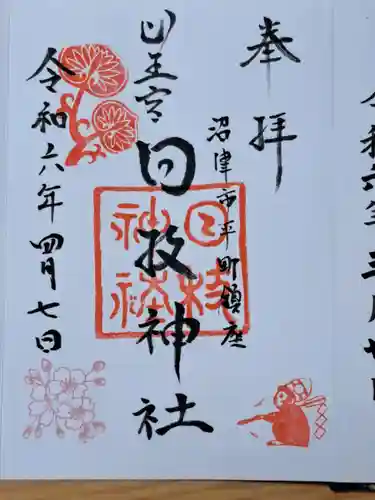 奉拝
沼津市平町鎮座
山王宮
日枝神社
日枝
神社
令和六年四月七日